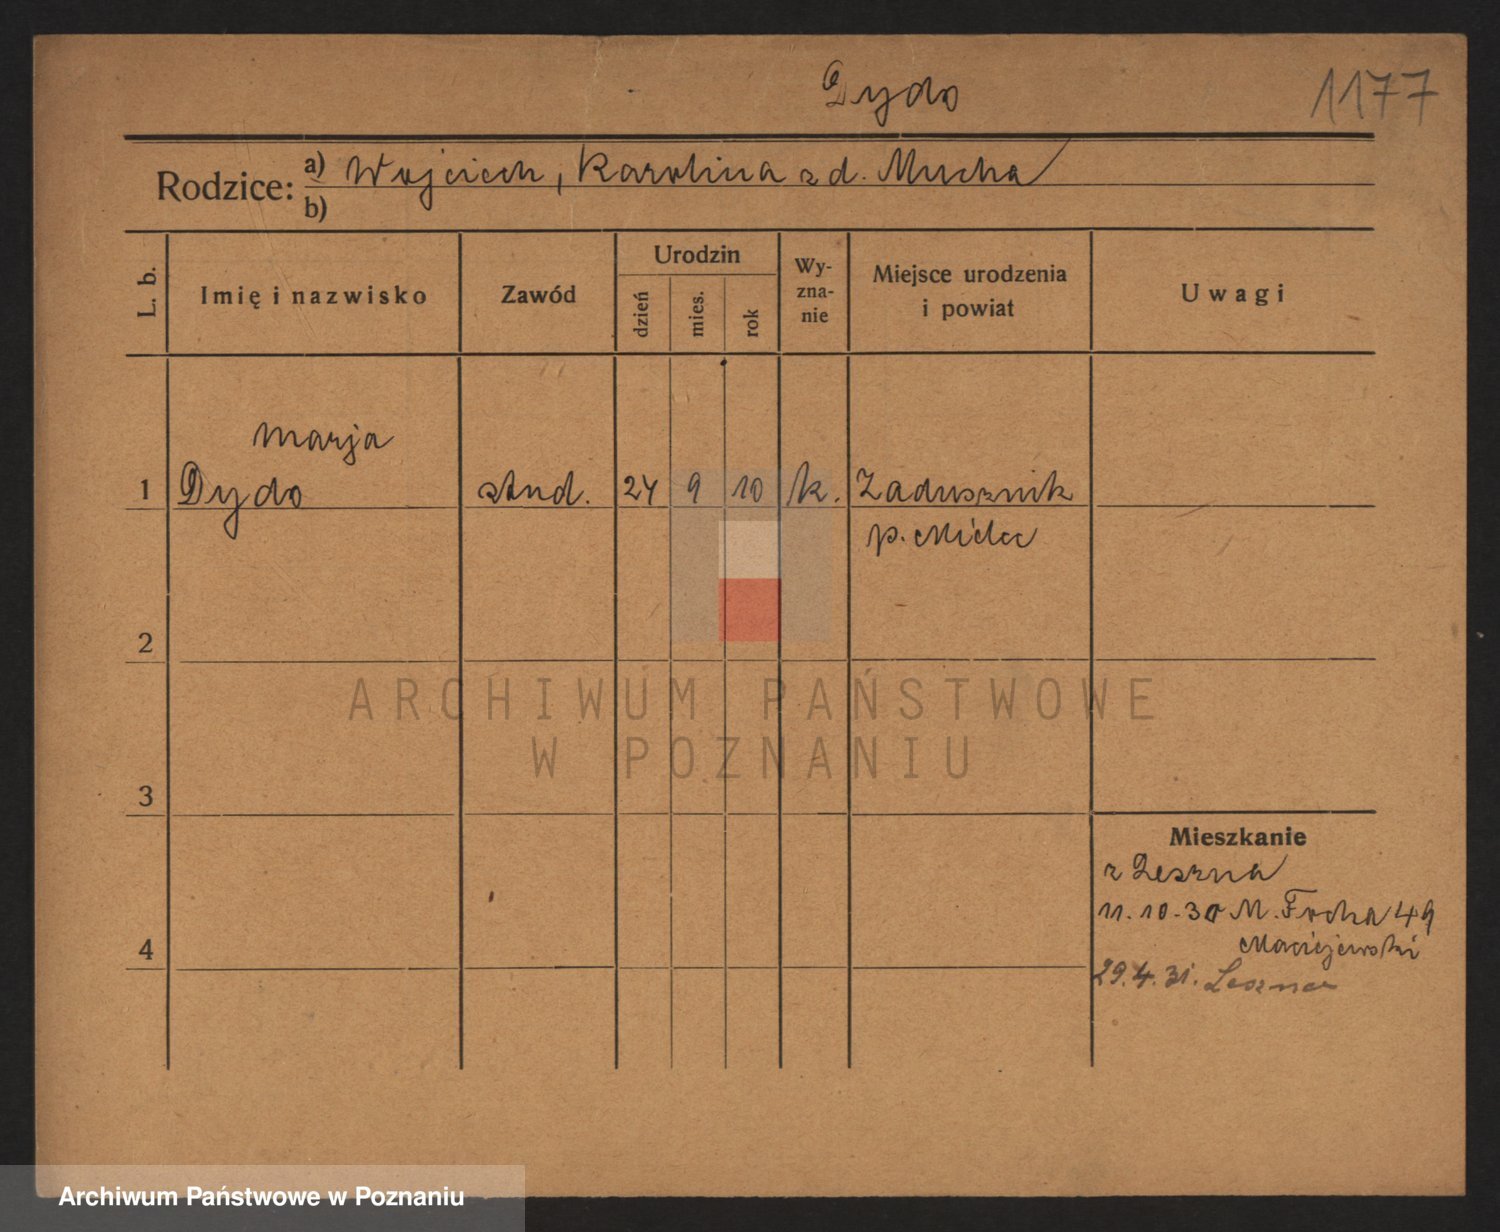 Dydo
1177
Rodzice: a) Wojciech, Karolina zd. Mucha
b)
L. b.
Imię i nazwisko
Zawód
Urodzin
dzień
mies.
rok
Wy-
zna-
nie
Miejsce urodzenia
i powiat
Uwagi
Marja
1 Dydo stud. 24 9 10 k. Zadusznik
p. Mielec
2
3
4
Mieszkanie
z Leszna
11.10.30 M. Focha 49
Maciejewski
29.4.31. Leszno
ARCHIWUM PAŃSTWOWE
W POZNANIU
Archiwum Państwowe w Poznaniu